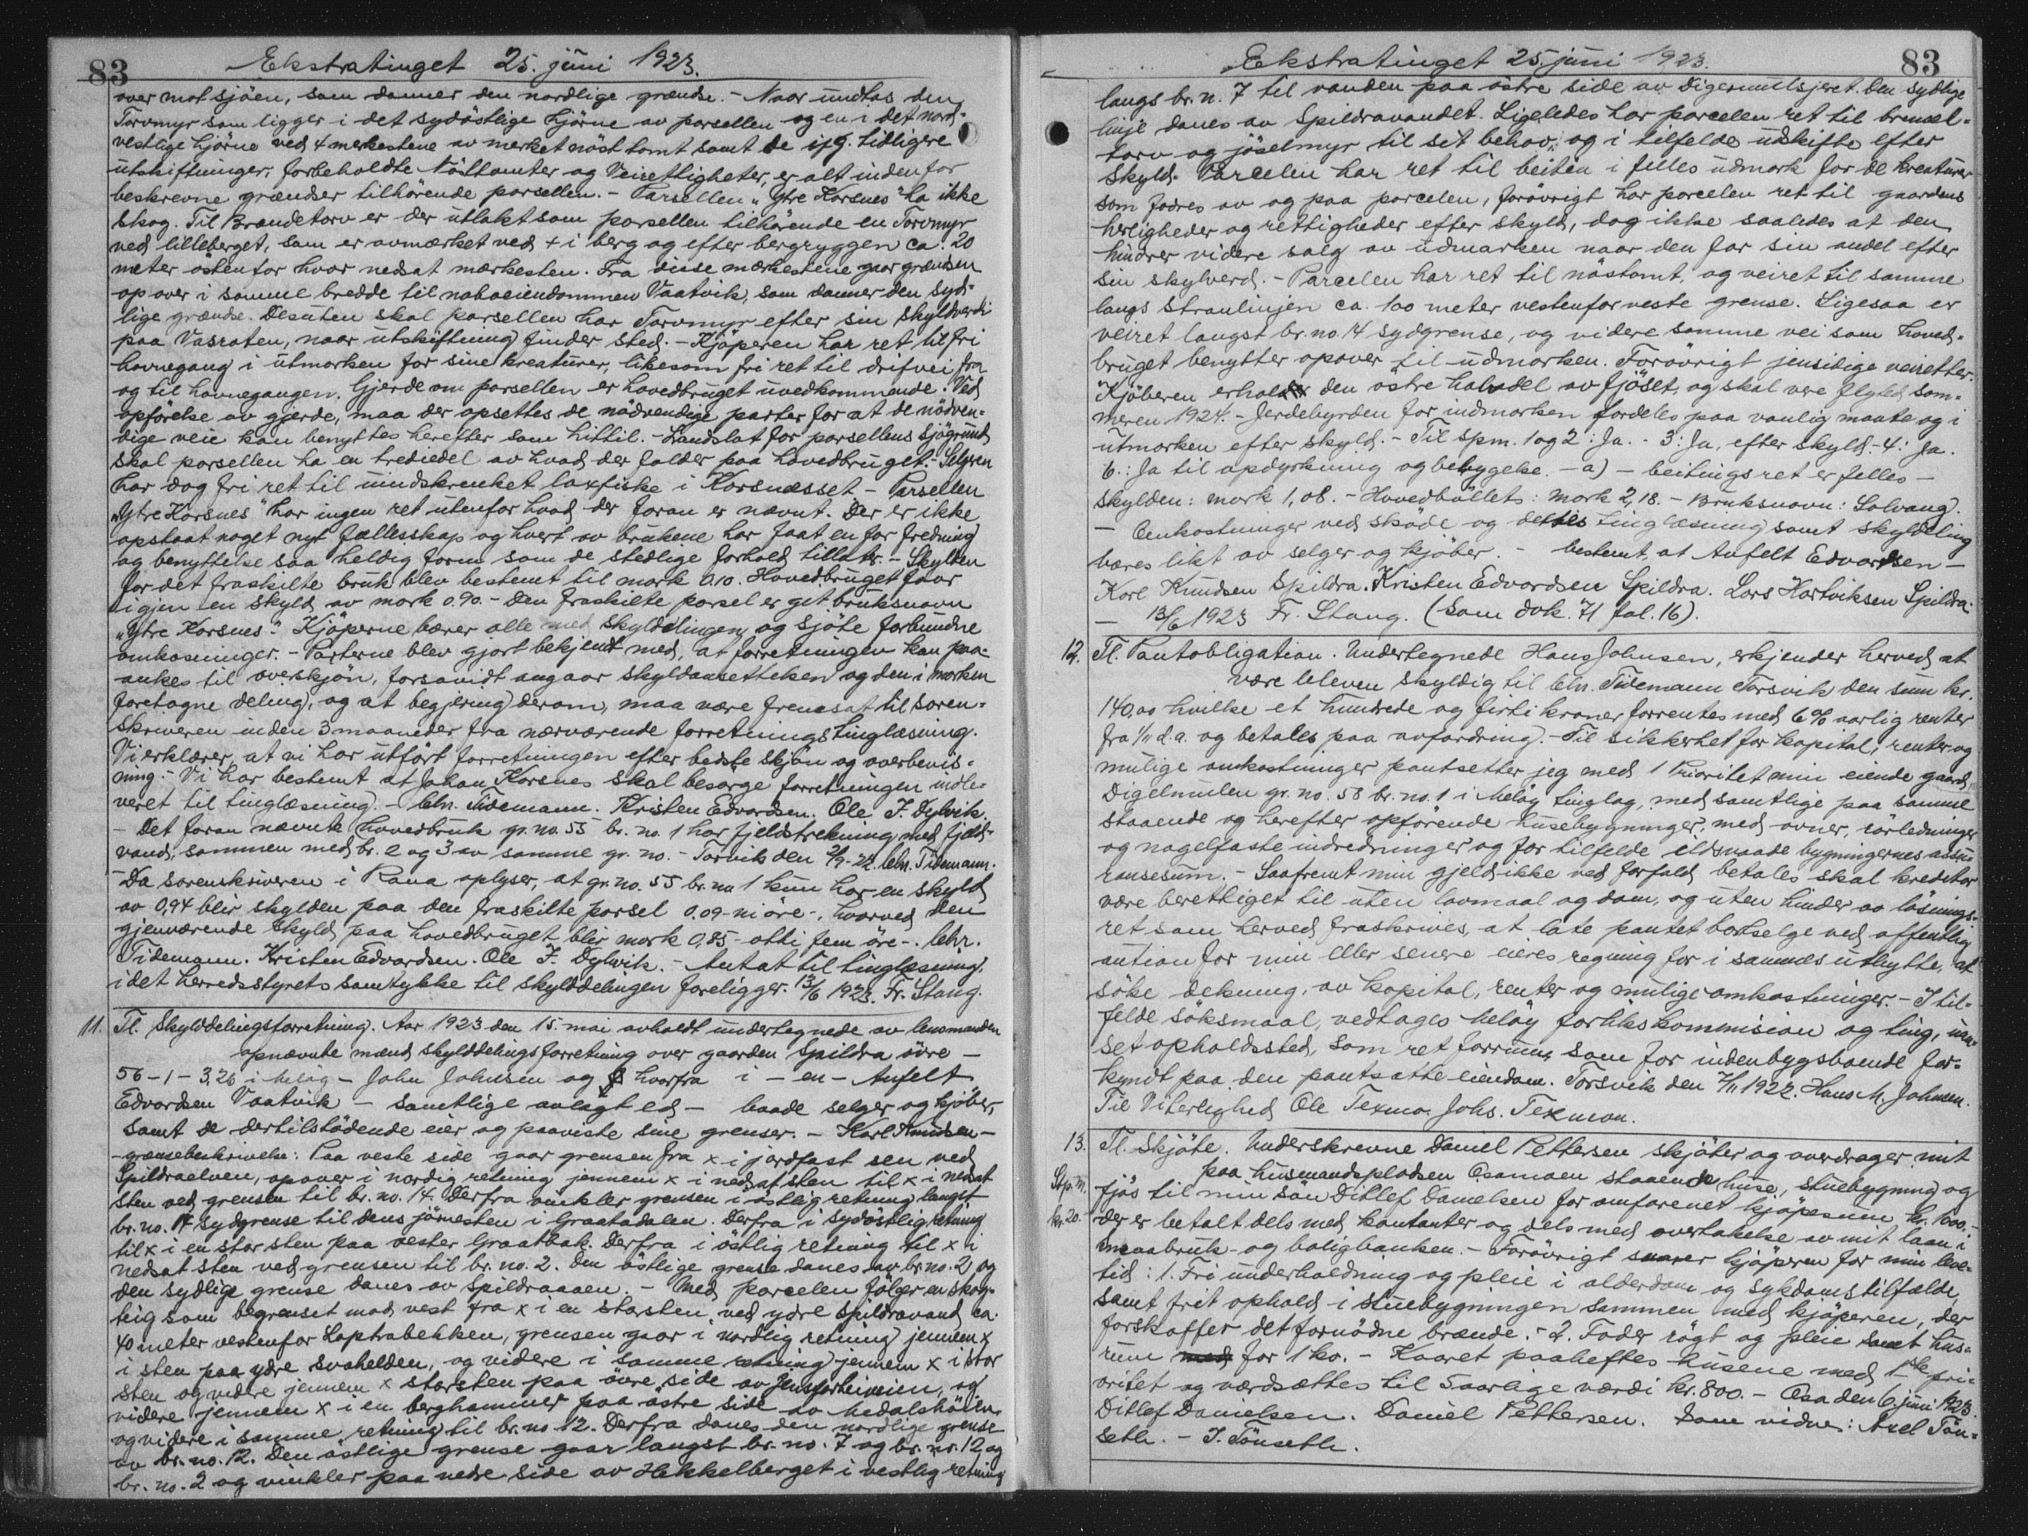 83
Ekstratinget 25. juni 1923.
over mot sjöen, som danner den nordlige grænse. - Naar undtas den
Torvmyr som ligger i det sydöstlige hjörne av parsellen og en i det nord-
vestlige hjörne ved 4 merkestene av merket nöst tomt samt de ifg. tidligere
utskiftninger, forbeholdte Nösttomter og Veirettigheter, er alt indenfor
beskrevne grænser tilhörende parsellen. - Parsellen "Ytre Korsnes" ha ikke
skog. Til Brændetorv er der utlakt som parsellen tilhörende en Torvmyr
ved lilleberget, som er avmærket ved + i berg og efter bergryggen ca. 20
meter östenfor hvor nedsat mærkesten. Fra disse mærkestene gaar grændsen
op over i samme bredde til naboeiendommen Vaatvik, som danner den syd-
lige grændse. Desuten skal parsellen har Torvmyr efter sin skyldverdi
paa Vasraten, naar utskiftning finder sted. - Kjöperen har ret til fri
havnegang i utmarken for sine kreaturer, likesom fri ret til drifvei fra
og til havnegangen. Gjerde om parsellen er hovedbruget uvedkommende. Ved
opförelse av gjerde, maa der opsettes de nödvendige porter for at de nödven-
dige veie kan benyttes herefter som hittil. - Landslot for parsellens sjögrund
skal parsellen ha en trediedel av hvad der falder paa hovedbruget. - Selgeren
har dog fri ret til uindskrenket laxfiske i Korsnesset - Parsellen
"Ytre Korsnes" har ingen ret utenfor hvad der foran er nævnt. Der er ikke
opstaat noget nyt fællesskap og hvert av brukene har faat en for fredning
og benyttelse saa heldig form som de stedlige forhold tillater. - Skylden
for det fraskilte bruk blev bestemt til mark 0.10. Hovedbruget faar
igjen en skyld av mark 0.90. - Den fraskilte parsel er git bruksnavn
"Ytre Korsnes". Kjöperne bærer alle med skylddelingen og sjöte forbundne
omkostninger. - Parterne blev gjort bekjendt med, at forretningen kan paa-
ankes til overskjön, forsavidt angaar skyldansettelsen og den i marken
foretagne deling, og at begjering derom, maa være fremsat til soren-
skriveren inden 3 maaneder fra nærværende forretnings tinglæsning.
Vi erklærer, at vi har utfört forretningen efter bedste skjön og overbevis-
ning. - Vi har bestemt at Johan Korsnes skal besorge forretningen indle-
veret til tinglæsning. - Chr. Tidemann. Kristen Edvardsen. Ole J. Dylvik.
- Det foran nævnte hovedbruk gr. no. 55 br. no. 1 har fjeldstrekning med fjeld-
vand, sammen med br. 2 og 3 av samme gr. no. - Torvik den 2/9-22. Chr. Tidemann.
Da sorenskriveren i Rana oplyser, at gr. no. 55 br. no. 1 kun har en skyld
av 0,94 blir skylden paa den fraskilte parsel 0.09 - ni öre -, hvorved den
gjenværende skyld paa hovedbruget blir mark 0,85 - otti fem öre -. Chr.
Tidemann. Kristen Edvardsen. Ole J. Dylvik. - Antat til tinglæsning,
idet herredsstyrets samtykke til skylddelingen foreligger. 13/6 1923. Fr. Stang.
11. Tl. Skylddelingsforretning. Aar 1923 den 15. mai avholdt undertegnede av lensmanden
opnævnte mænd skylddelingsforretning over gaarden Spildra övre -
56 - 1 - 3,26 i Melöy - John Johnsen og hvorfra i - en - Anfelt
Edvardsen Vaatvik - samtlige avlagt ed - baade selger og kjöber,
samt de dertilstödende eier og paaviste sine grenser. - Karl Knudsen -
grensebeskrivelse: Paa veste side gaar grensen fra x i jordfast sen ved
Spildraelven, opover i nordig retning jennem x i nedsat sten til x i nedsat
sten ved grensen til br. no. 14. Derfra vinkler grensen i östlig retning langst
br. no. 14 sydgrense til dens jörnesten i Graatadalen. Derfra i sydöstlig retning
til x i en stor sten paa vester Graatbak. Derfra i östlig retning til x i
nedsat sten ved grensen til br. no. 2. Den östlige grense danes av br. no. 2, og
den sydlige grense danes av Spildraaaen. - Med parcelen fölger en skog-
teig som begrenset mod vest fra x i en stosten ved ydre Spildravand ca.
40 meter vestenfor Laptrabekken, grensen gaar i nordlig retning jennem x
i sten paa ydre svahelden, og videre i samme retning jennem x i stor
sten og videre jennem x storsten paa övre side av , og
videre jennem x i en berghammer paa östre side av Medalshöien
og videre i samme retning til br. no 12. Derfra danes den nordlige grense
av br. no. 12. Den östlige grense gaar langst br. no. 7 og br. nr. 12 og
br. no. 2 og vinkler paa nedre side av Hekkelberget i vestlig retning
Ekstratinget 25. juni 1923.
83
langs br. n. 7 til vanden paa östre side av Digermulsjeret. Den sydlige
linje danes av Spildravandet. Ligeledes har parcelen ret til brensel-
torv og jöselmyr til sit behov, og i tilfelde utskifte efter
skyld. Parcelen har ret til beiten i felles udmark for de kreaturer
som fodres av og paa parcelen, forövrigt har parcelen ret til gaardens
herligheder og rettigheder efter skyld, dog ikke saaledes at den
hindrer videre salg av udmarken naar den far sin andel efter
sin skylverd. - Parcelen har ret til nöstomt, og veiret til samme
langs stranlinjen ca. 100 meter vestenfor veste grense. Ligesaa er
veiret langst br. no. 14 sydgrense, og videre samme vei som hoved-
bruget benytter opover til udmarken. Forövrigt jensidige veiretter.
Kjöberen erholder den östre halvdel av fjöset, og skal vere flyttet som-
meren 1924. - Jerdebyrden for indmarken fordeles paa vanlig maate og i
utmarken efter skyld. - Til spm. 1 og 2: Ja. - 3: Ja, efter skyld. 4: Ja.
6.: Ja til opdyrkning og bebygelse. - a) - beitingsret er felles -
skylden: mark 1,08. - Hovedböllets: mark 2,18. - Bruksnavn: Solvang.
- Omkostninger ved sköde og dettes tinglæsning samt skyldeling
væres likt av selger og kjöber. - bestemt, at Anfelt Edvardsen -
Karl Knudsen Spildra. Kristen Edvardsen Spildra. Lars Hartviksen Spildra.
- 13/6 1923 Fr. Stang. (Som dok. 71 fol. 16).
12. Tl. Pantobligation. Undertegnede Hans Johnsen, erkjender herved at
være bleven skyldig til Chr. Tidemann Torsvik den sum kr.
140,00 hvilke et hundrede og firti kroner forrentes med 6 % aarlig renter
fra 1/11 d. a. og betales paa anfordring. - Til sikkerhet for kapital, renter og
mulige omkostninger pantsetter jeg med 1 Prioritet min eiende gaard
Digelmulen gr. no. 58 br. no. 1 i Melöy tinglag, med samtlige paa samme
staaende og herefter opförende husebygninger, med ovner, rörledninger
og nagelfaste indredninger og for tilfelde ildsvaade bygningernes assu-
ransesum. - Saafremt min gjeld ikke ved forfald betales skal kreditor
være berettiget til uten lovmaal og dom, og uten hinder av lösnings-
ret som herved fraskrives, at late pantet bortselge ved offentlig
auktion for min eller senere eieres regning for i sammes utbytte, at
söke dekning, av kapital, renter og mulige omkostninger. - I til-
felde söksmaal, vedtages Melöy forlikskommision og ting, uan-
set opholdssted, som ret forrum, som for indenbygsboende for-
kyndt paa den pantsatte eiendom. Torsvik den 7/11 1922. Hans M. Johnsen.
Til Viterlighed Ole Texmo. Johs. Texmon.
13. Tl. Skjöte. Underskrevne Daniel Pettersen skjöter og overdrager mit
paa husmandspladsen Osamoen staaende huse, stuebygning og
Stp. M. fjös til min sön Ditlef Danielsen for omforenet kjöpesum kr. 1000,-
kr. 20. der er betalt dels med kontanter og dels med overtakelse av mit laan i
smaabruk- og boligbanken. - Forövrigt svarer kjöperen for min leve-
tid: 1. Fri underholdning og pleie i alderdom og sykdomstilfælde,
samt frit ophold i stuebygningen sammen med kjöperen, der
forskaffer det fornödne brænde. - 2. Foder rögt og pleie samt hus-
rum for 1 ko. - Kaaret paaheftes husene med 1ste pri-
oritet og værdsættes til 5 aarlige værdi kr. 800. - Osa den 6. juni 1923.
Ditlef Danielsen. Daniel Pettersen. Som vidner: Axel Tön-
seth. - J. Tönseth.